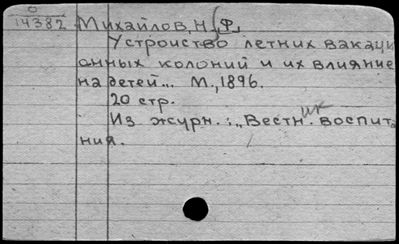 0
14382
Михайлов, Н. Ф.
Устройство летних вакаци
онных колоний и их влияние
на детей... М., 1896.
20 стр.
Из журн.: „Вестник воспита
ния.